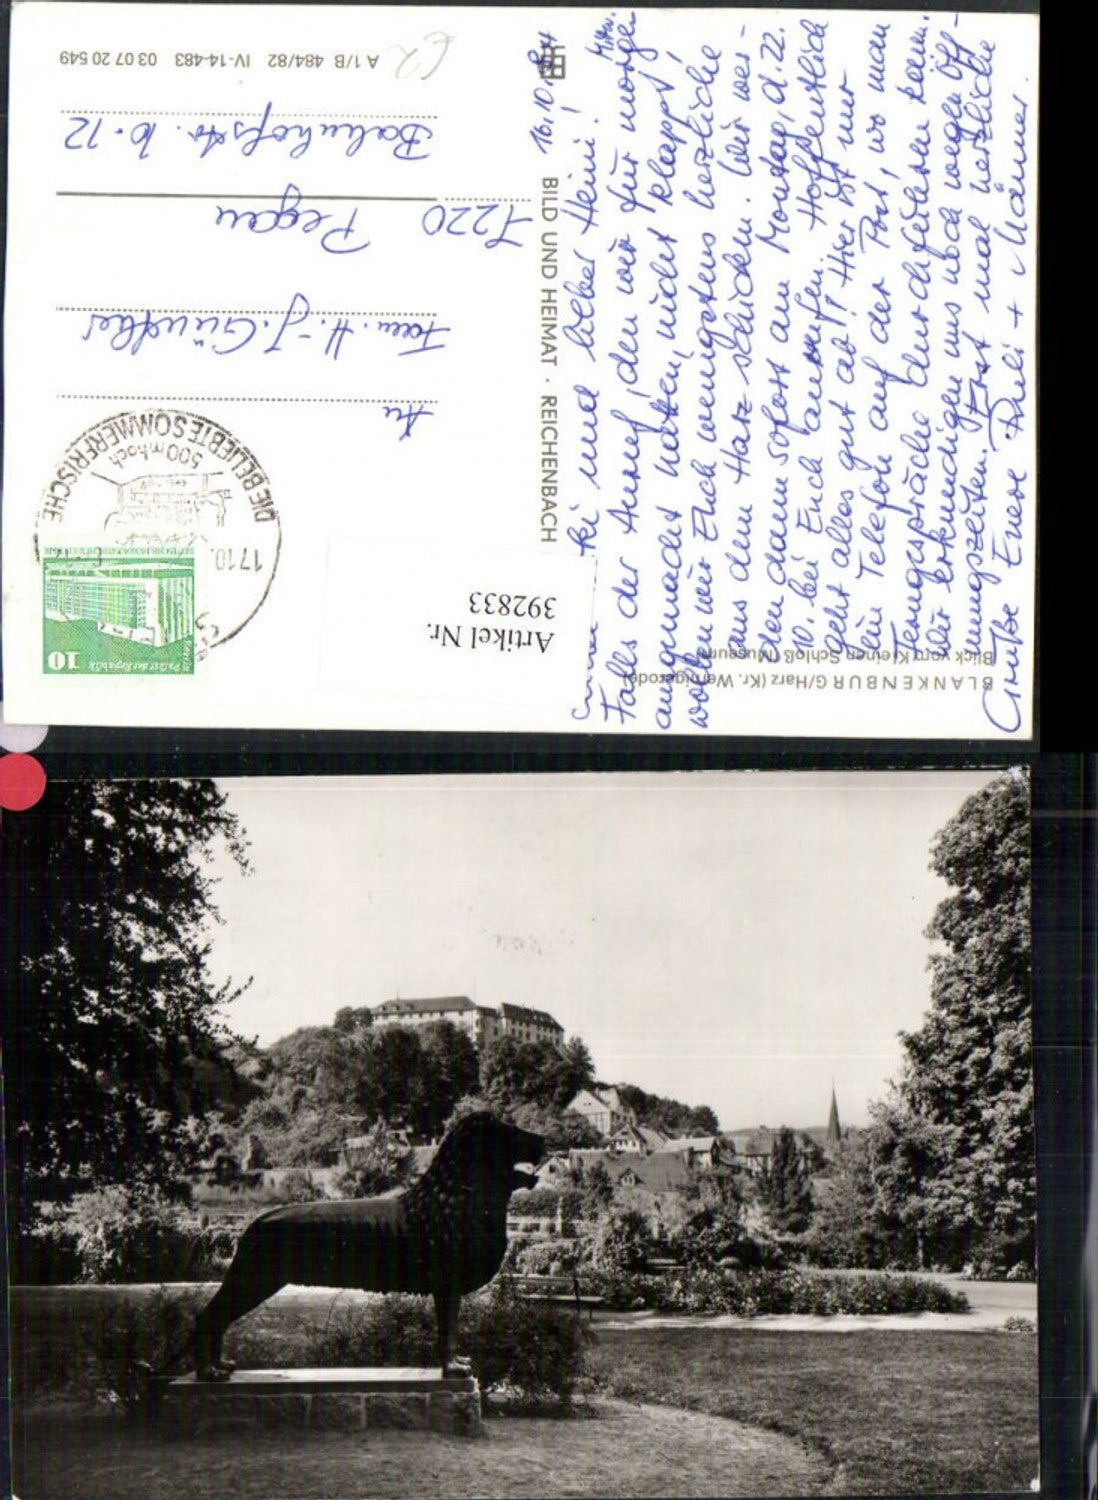 BLANKENBURG/Harz (Kr. Wernigerode)
Blick vom Kleinen Schloß (Museum)
16.10.84
lieber Heini!
Falls der Anruf, den wir für morgen
ausgemacht hatten, nicht klappt,
wollen wir Euch wenigstens herzliche
aus dem Harz schicken. Wir wer-
den dann sofort am Montag, d. 22.
10. bei Euch anrufen. Hoffentlich
geht alles gut ab!! Hier ist nur
ein Telefon auf der Post, wo man
Ferngespräche durchführen kann.
Wir erkundigen uns noch wegen Öff-
nungszeiten. Erst mal herzliche
Grüße Eure + Männer
BILD UND HEIMAT · REICHENBACH
Artikel Nr.
392833
DIE BELIEBTE SOMMERFRISCHE
500 m hoch
17.10.
10
Palast der Republik
An
Fam. H.-J. Günther
7220 Pegau
Bahnhofstr. 10-12
A 1/B 484/82 IV-14-483 03 07 20 549